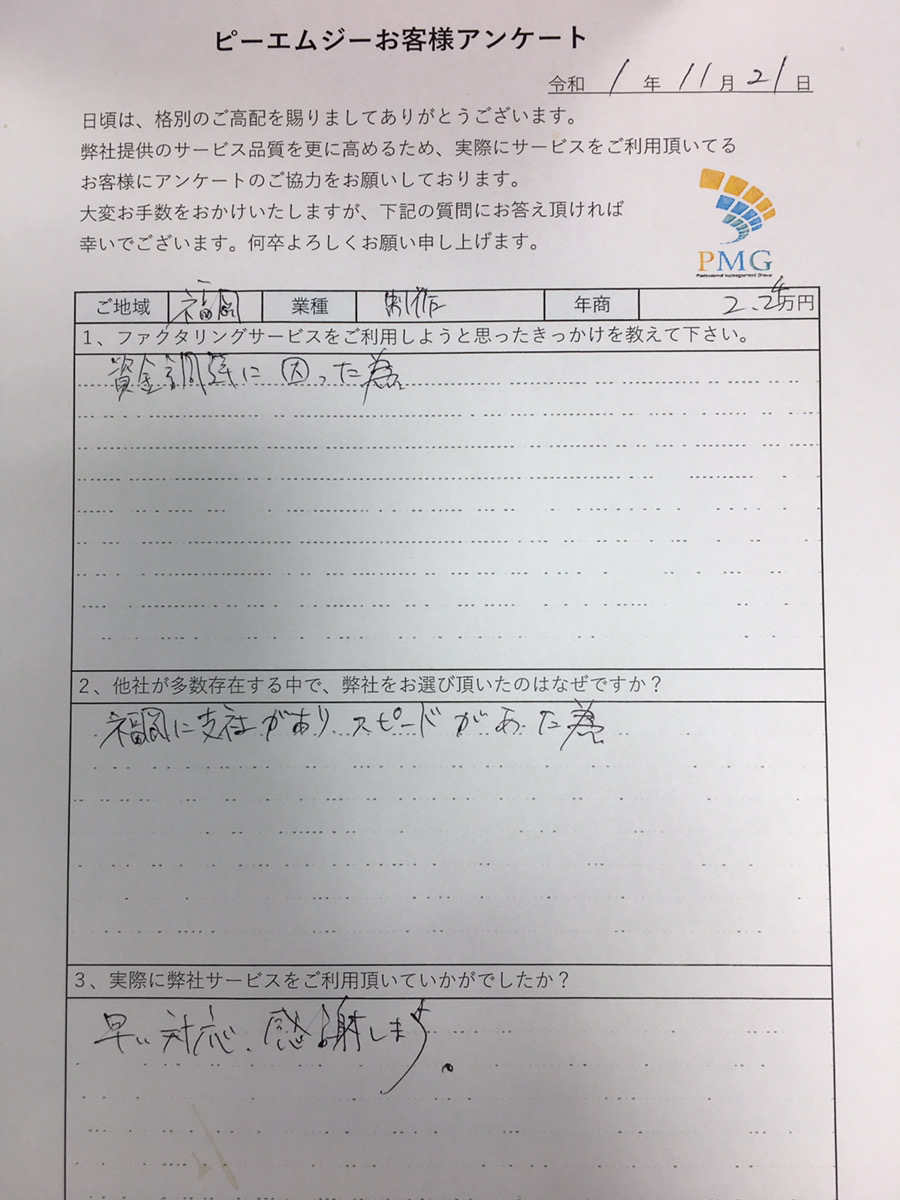 ピーエムジーお客様アンケート
令和 1 年 11 月 21 日
日頃は、格別のご高配を賜りましてありがとうございます。
弊社提供のサービス品質を更に高めるため、実際にサービスをご利用頂いてる
お客様にアンケートのご協力をお願いしております。
大変お手数をおかけいたしますが、下記の質問にお答え頂ければ
幸いでございます。何卒よろしくお願い申し上げます。
PMG
Professional Management Group
ご地域 福岡 業種 制作 年商 2.2 万円
1、ファクタリングサービスをご利用しようと思ったきっかけを教えて下さい。
資金調達に困った為
2、他社が多数存在する中で、弊社をお選び頂いたのはなぜですか？
福岡に支社がありスピードがあった為
3、実際に弊社サービスをご利用頂いていかがでしたか？
早い対応、感謝します。